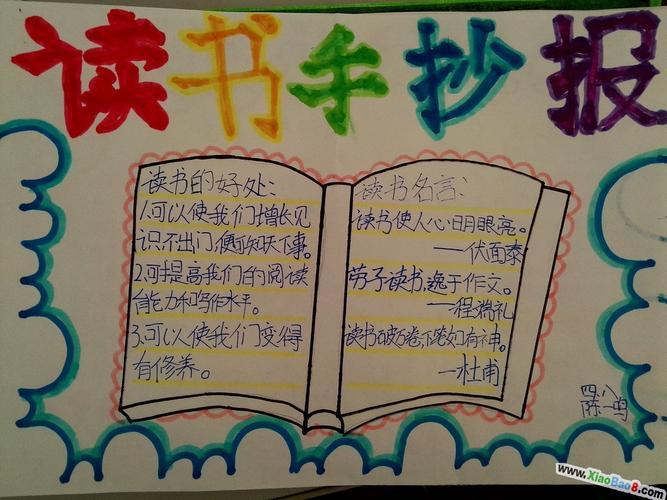 读书手抄报
读书的好处:
1.可以使我们增长见
识不出门便可知天下事。
2.可提高我们的阅读
能力和写作水平。
3.可以使我们变得
有修养。
读书名言:
读书使人心明眼亮。
——伏面泰
劳于读书,逸于作文。
—程瑞礼
读书破万卷,下笔如有神。
—杜甫
四、八
陈一鸣
www.XiaoBao8.com